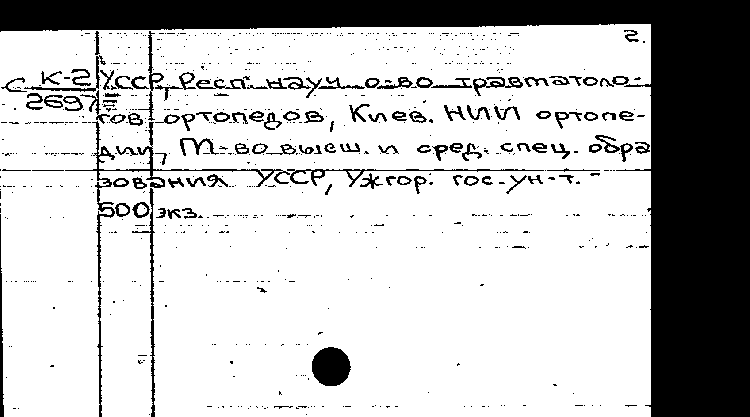 2.
С К-2 УССР, Респ. науч. о-во травматоло-
2697 гов-ортопедов, Киев. НИИ ортопе-
дии, М-во высш. и сред. спец. обра
зования УССР, Ужгор. гос. ун-т. -
500 экз.